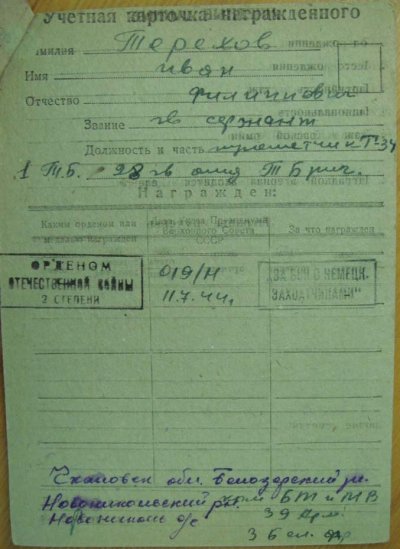 Учетная карточка награжденного
Фамилия Терехов
Имя Иван
Отчество Филиппович
Звание гв сержант
Должность и часть Т-34
1 Т.Б. 28 гв Т Бриг.
Награжден:
Каким орденом или медалью награжден
Верховного Совета СССР
За что награжден
ОРДЕНОМ ОТЕЧЕСТВЕННОЙ ВОЙНЫ 2 СТЕПЕНИ
019/Н 11.7.44.
"ЗА БОИ С НЕМЕЦК. ЗАХВАТЧИКАМИ"
Чкаловск обл. Белозерский рн.
Новоникольский БТ и МВ
Новониколь с/с 39 Арм.
3 Бел. фр